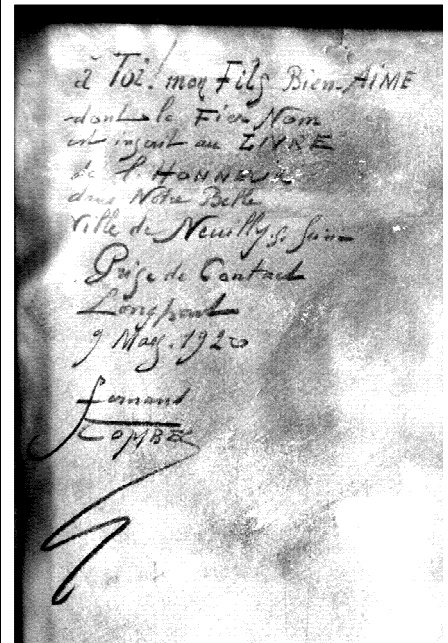 à Toi! mon Fils Bien-AIMÉ
dont le Fier Nom
est inscrit au LIVRE
de l'HONNEUR
dans Notre Belle
Ville de Neuilly s. Seine
Prise de Contact
Longpont
9 May. 1920
Fernand
COMBE